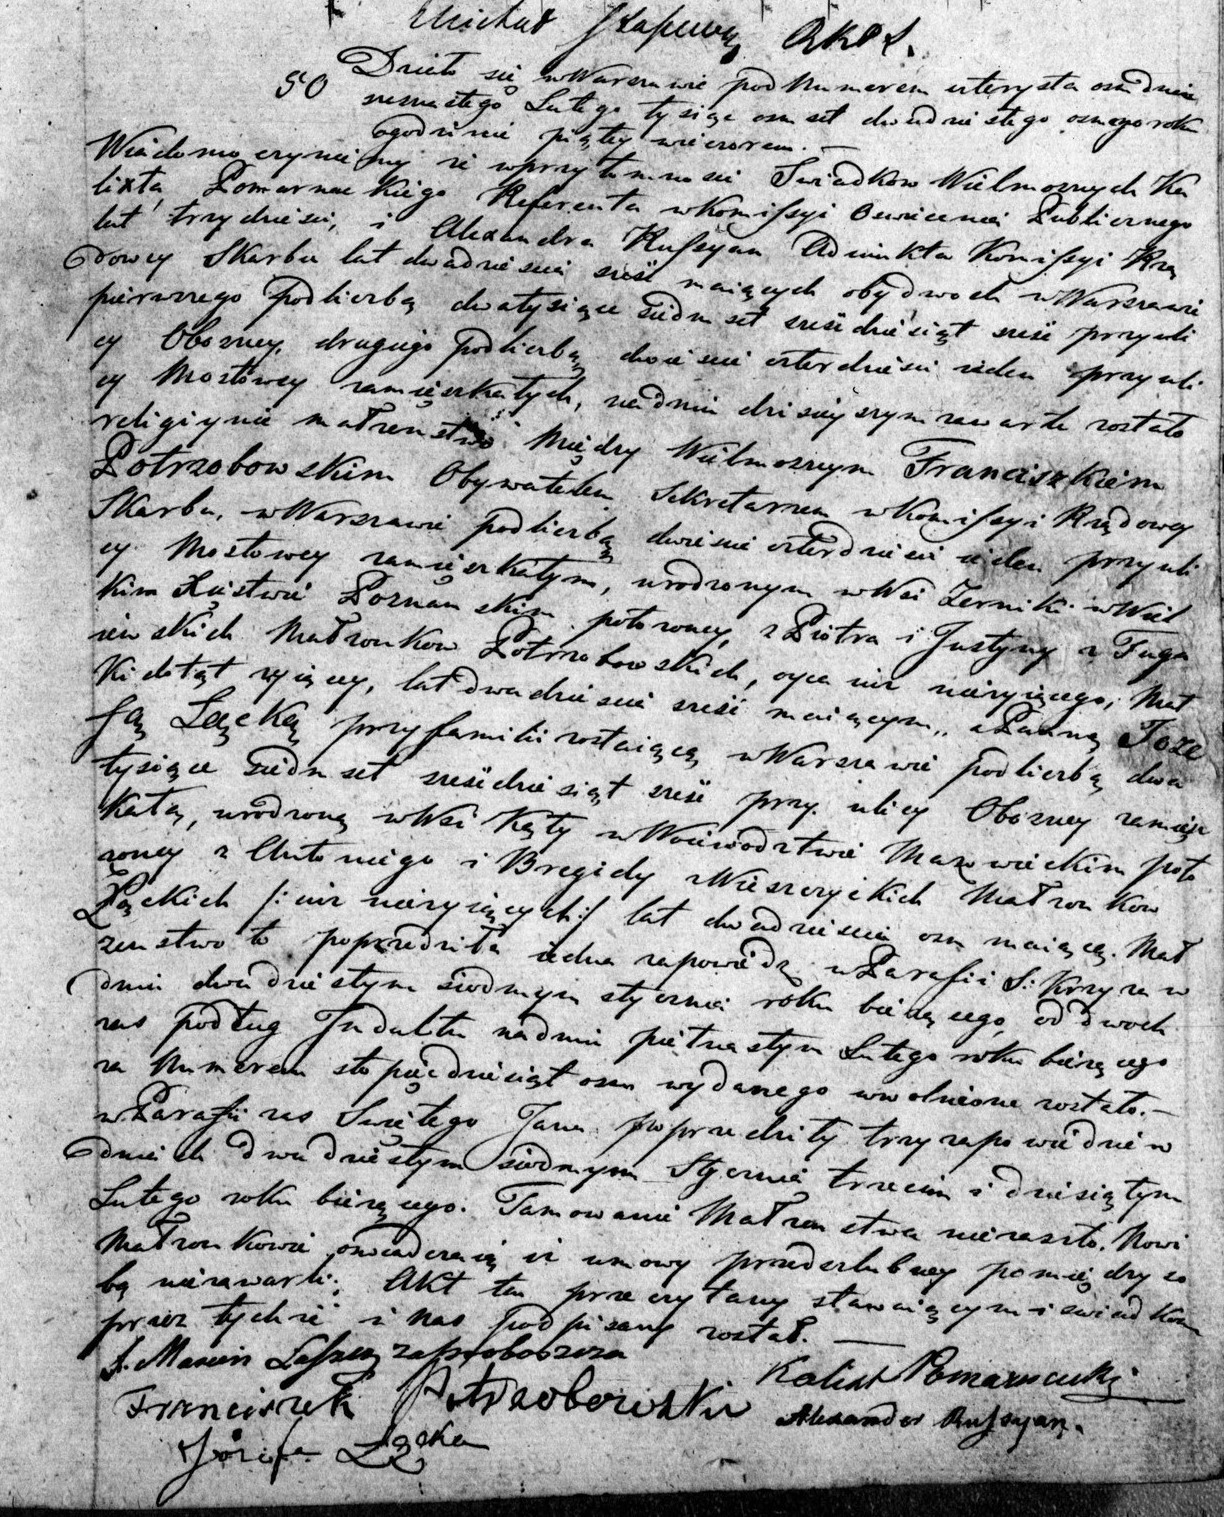 Michał Szapuwą RKPS.
50 Działo się w Warszawie pod Numerem czterysta osm dnia
szesnastego Lutego tysiąc osmset dwudziestego osmego roku
o godzinie piątey wieczorem. —
Wiadomo czyniemy iż w przytomnosci Swiadkow Wielmoznych Ka
lixta Pomarnackiego Referenta w Komissyi Oswiecenia Publicznego
lat trzydziesci, i Alexandra Russyan Adiunkta Komissyi Rzą
dowey Skarbu lat dwadziescia szesć maiących obydwoch w Warszawie
pierwszego pod liczbą dwa tysiące siedmset szescdziesiąt szesć przy uli
cy Obozney, drugiego pod liczbą dwiescie czterdziesci ieden przy uli
cy Mostowey zamieszkałych, na dniu dzisieyszym zawarte zostało
religiynie małzenstwo między Wielmoznym Franciszkiem
Potrzobowskim Obywatelem Sekretarzem w Komissyi Rządowey
Skarbu, w Warszawie pod liczbą dwiescie czterdziesci ieden przy uli
cy Mostowey zamieszkałym, urodzonym w Wsi Zerniki w Wiel
kim Xięstwie Poznanskim połozoney, z Piotra i Justyny z Fuga
iewskich Małzonkow Potrzobowskich, oyca iuz niezyiącego, Mat
ki dotąt zyiącey, lat dwadziescia szesć maiącym, a Panną Joze
fą Łącką przy familii zostaiącą w Warszawie pod liczbą dwa
tysiące siedmset szescdziesiąt szesć przy ulicy Obozney zamiesz
kałą, urodzoną w Wsi Kąty w Woiewodztwie Mazowieckim poło
zoney z Antoniego i Bregidy z Wieszczyckich Małzonkow
Łąckich /: iuz niezyiących :/ lat dwadziescia osm maiącą. Mał
zenstwo to poprzedziła iedna zapowiedz w Parafii S: Krzyza w
dniu dwudziestym siodmym stycznia roku biezącego, od dwoch
zas podług Indultu na dniu pietnastym Lutego roku biezącego
za Numerem sto pięcdziesiąt osm wydanego uwolnione zostało. —
w Parafii zas Swiętego Jana poprzedziły trzy zapowiedzie w
dniach dwudziestym siodmym Stycznia trzecim i dziesiątym
Lutego roku biezącego. Tamowanie Małzenstwa nie zaszło. Nowi
Małzonkowie oswiadczaią iz umowy przedslubney pomiędzy so
bą niezawarli; Akt ten przeczytany stawaiącym i swiadkom
przez tychze i nas podpisany zostal. —
X. Marcin Lassze za Proboszcza
Kalixt Pomarnacki
Franciszek Potrzobowski
Alexander Russyan.
Józefa Łącka